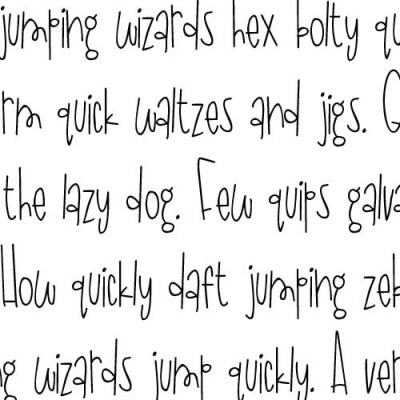 jumping wizards hex bolty qu
rm quick waltzes and jigs. G
the lazy dog. Few quips galva
How quickly daft jumping zeb
ng wizards jump quickly. A ver